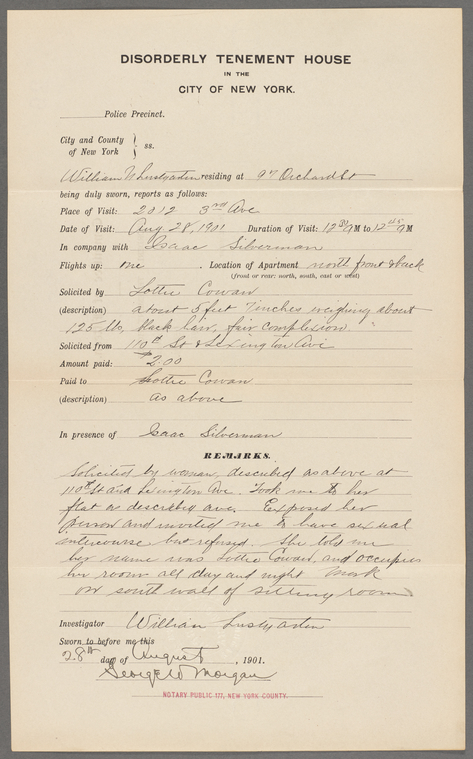 DISORDERLY TENEMENT HOUSE
IN THE
CITY OF NEW YORK.
Police Precinct.
City and County
of New York } ss.
William N Lustgarten residing at 97 Orchard St
being duly sworn, reports as follows:
Place of Visit: 2012 3rd Ave
Date of Visit: Aug 28, 1901 Duration of Visit: 12 30 M to 12 45 M
In company with Isaac Silverman
Flights up: one . Location of Apartment north front & back
(front or rear: north, south, east or west)
Solicited by Lottie Cowan
(description) about 5 feet 7 inches weighing about
125 lbs, black hair, fair complexion
Solicited from 110th St & Lexington Ave
Amount paid: $2.00
Paid to Lottie Cowan
(description) as above
In presence of Isaac Silverman
REMARKS.
Solicited by woman, described as above at
110th St and Lexington Ave. Took me to her
flat as described ave. Exposed her
person and invited me to have sexual
intercourse but refused. She told me
her name was Lottie Cowan, and occupies
her room all day and night Mark
on south wall of sitting room
Investigator William Lustgarten
Sworn to before me this
28th day of August , 1901.
George W Morgan
NOTARY PUBLIC 177, NEW YORK COUNTY.